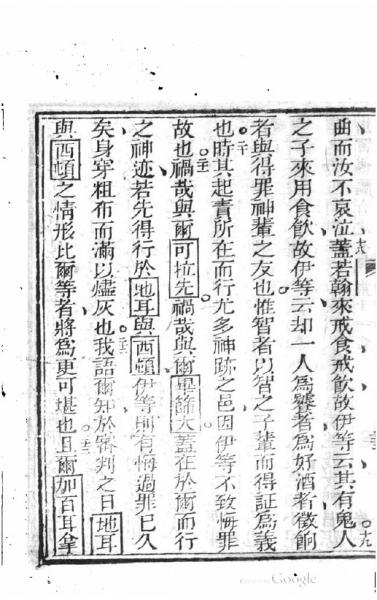 曲而汝不哀泣蓋若翰來戒食戒飲故伊等云其有鬼人
之子來用食飲故伊等云却一人為饕者為好酒者徵餉
者與得罪神輩之友也惟智者以智之子輩而得証為義
也時其起責所在而行尤多神跡之邑因伊等不致悔罪
故也禍哉與爾可拉先禍哉與爾畢篩大蓋在於爾而行
之神迹若先得行於地耳與西頓伊等則有悔過罪已久
矣身穿粗布而滿以爐灰也我語爾知於審判之日地耳
與西頓之情形比爾等者將為更可堪也且爾加百耳拿
Google